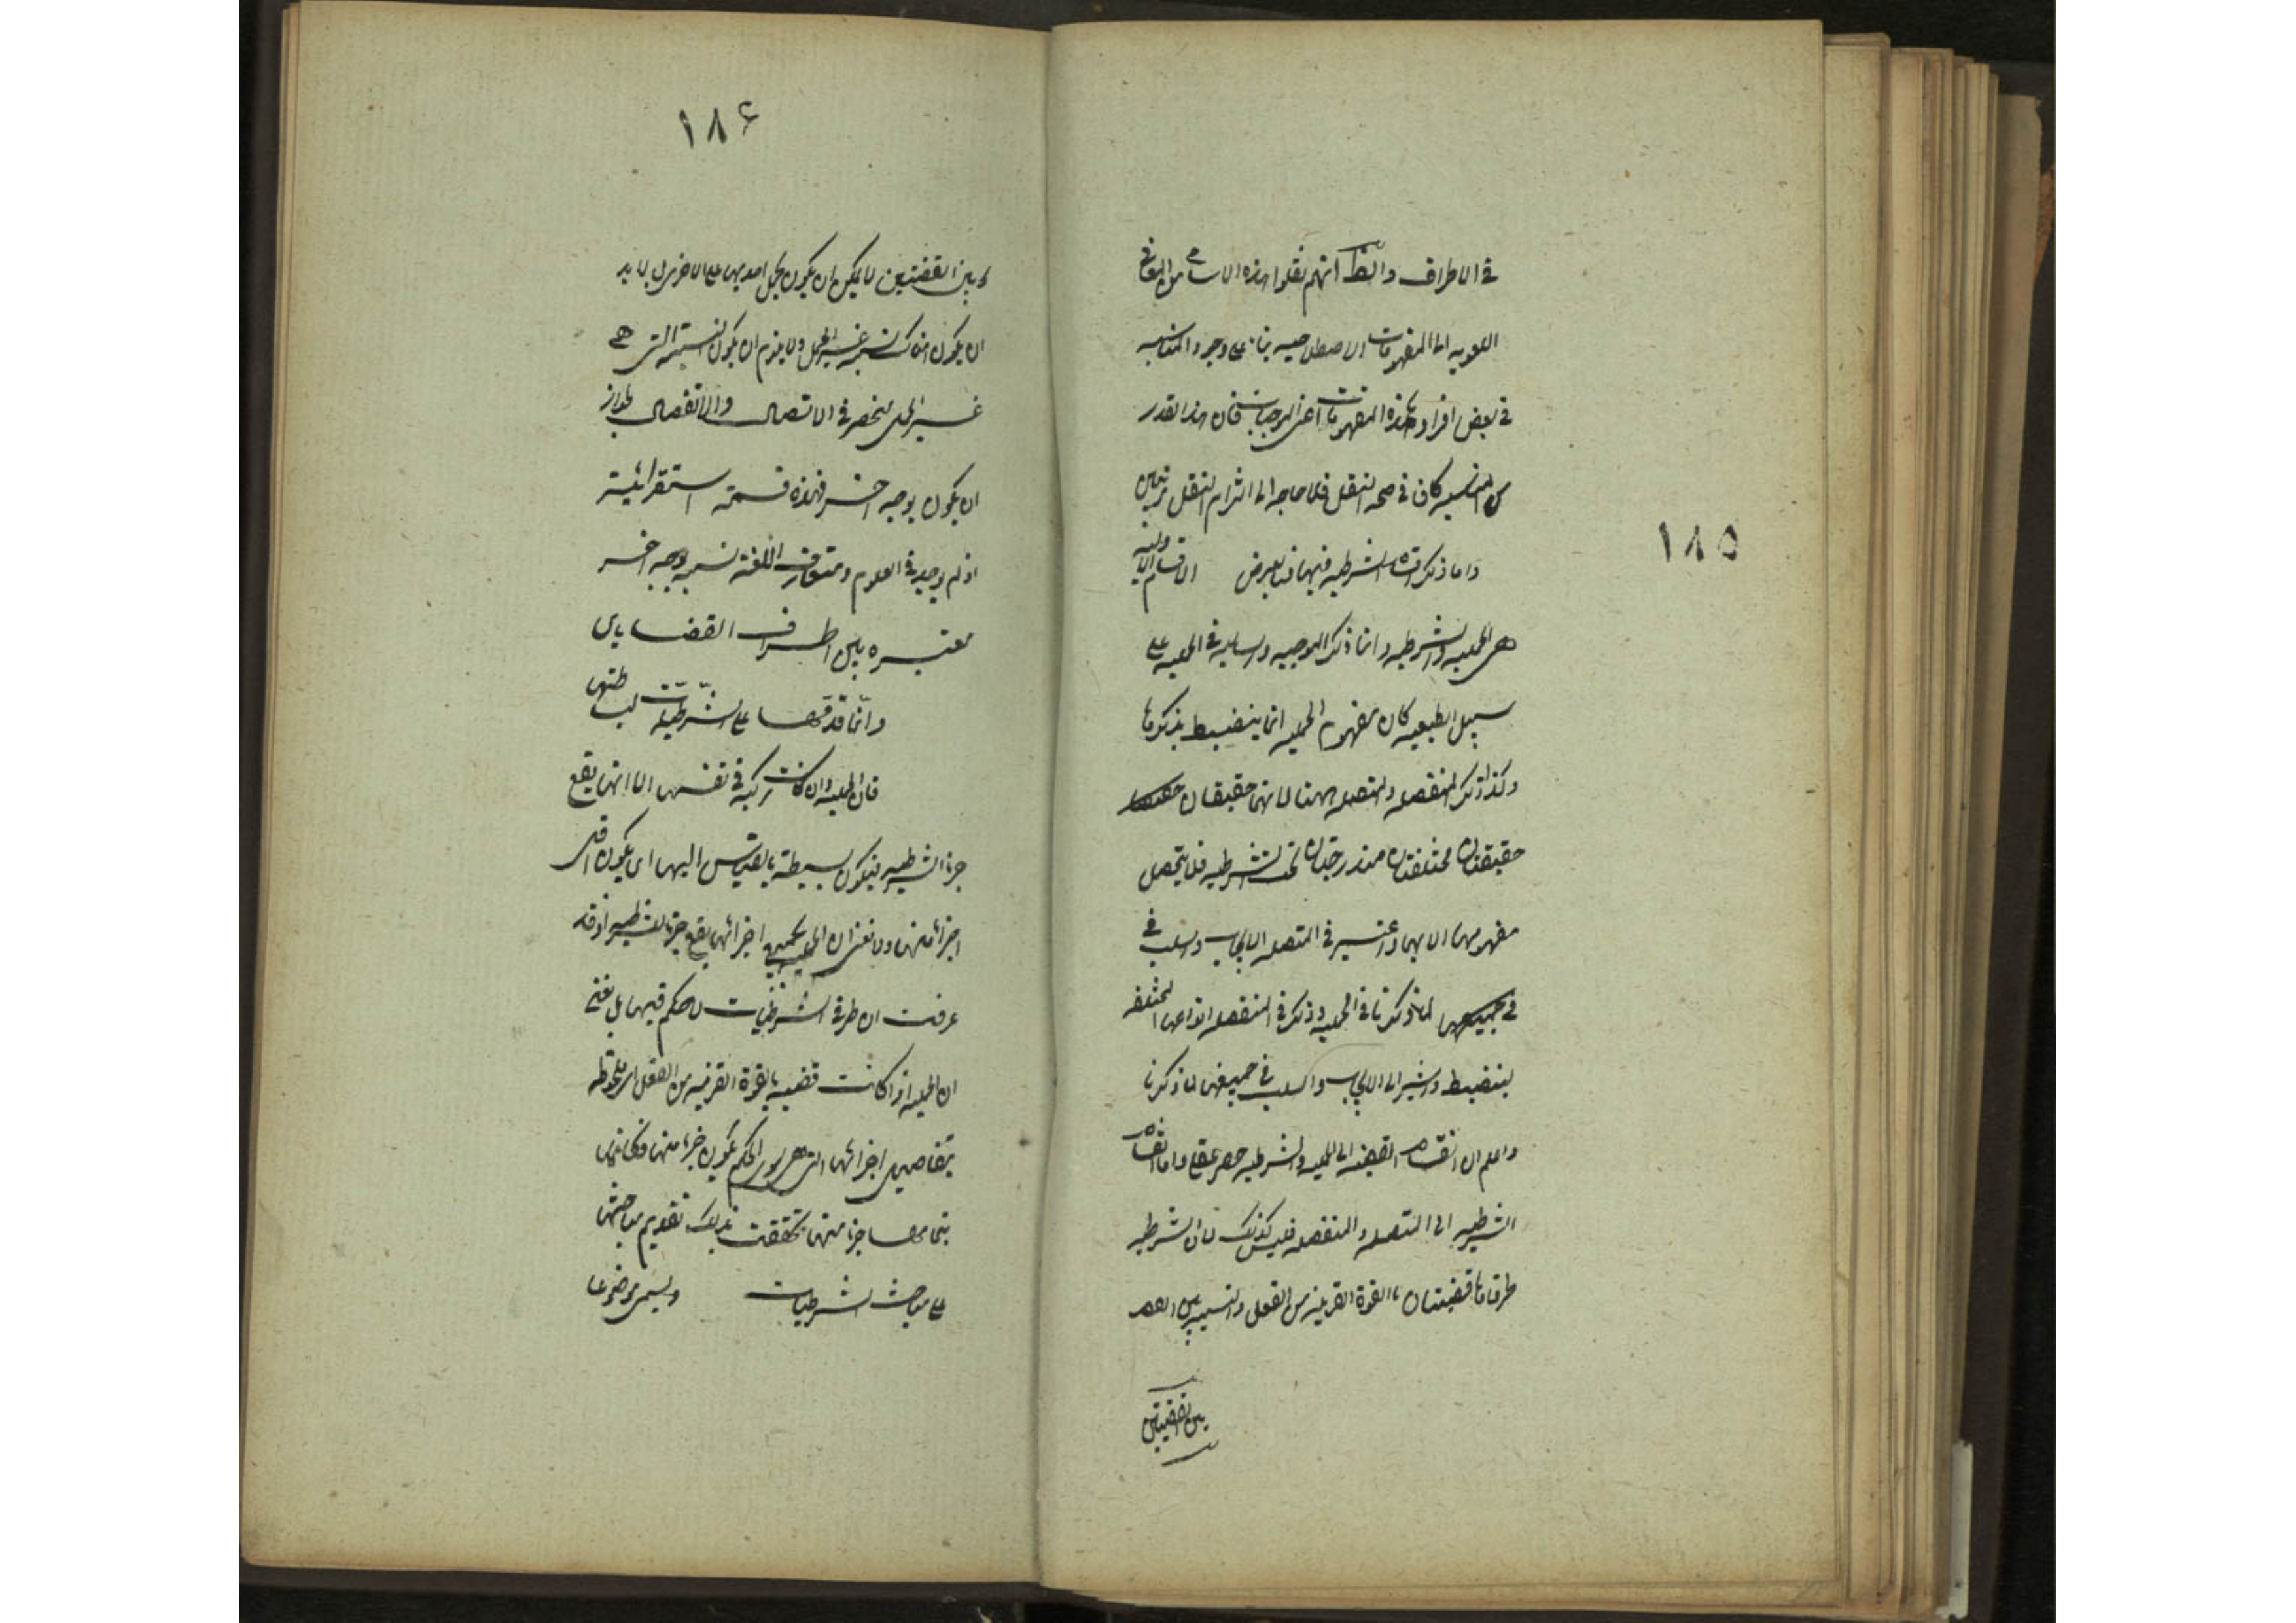 ١٨٥
في الاطراف والظ انهم نقلوا هذه الاسامي من المعاني
اللغويه الى المفهومات الاصطلاحيه بناء على وجود المناسبه
في بعض افراد هذه المفهومات اعنى الموجبات فان هذا القدر
من المناسبه كاف في صحه النقل فلا حاجه الى التزام النقل مرتين
واما ذكر اقسام الشرطيه فيهما فبالعرض الاقسام الاوليه
هى الحمليه والشرطيه وانما ذكر الموجبه والسالبه في الحمليه على
سبيل الطبعيه كان مفهوم الحمليه انما ينضبط بذكرها
وكذا ذكر المنفصله والمتصله ههنا لانهما حقيقتان
حقيقتان مختلفتان مندرجتان تحت الشرطيه فلا يتحصل
مفهومها الا بهما واعتبر في المتصله الايجاب والسلب في
في جميعها لما ذكرنا في الحمليه وذكر في المنفصله انواعها المختلفه
لينضبط واشير الى الايجاب والسلب في جميعها لما ذكرنا
واعلم ان انقسام القضيه الى الحمليه والشرطيه حصر عقلي واما انقسام
الشرطيه الى المتصله والمنفصله فليس كذلك لان الشرطيه
طرفاها قضيتان بالقوة القريبة من الفعل والنسبه بين
بين القضيتين
١٨۶
وبين القضيتين لا يمكن ان يكون بحمل احديهما على الاخرى بل لا بد
ان يكون هناك نسبه غير الحمل ولا يلزم ان يكون النسبه التى هي
غير الحمل منحصره في الاتصال والانفصال لجواز
ان يكون بوجه اخر فهذه قسمة استقرائية
اذ لم يوجد في العلوم ومتعارف اللغة نسبه بوجه اخر
معتبره بين اطراف القضايا
وانما قدمها على الشرطيات لبساطتها
فان الحمليه وان كانت مركبه في نفسها الا انها يقع
جزء الشرطيه فيكون بسيطة بالقياس اليها اى يكون اقل
اجزاء منها ولا نعنى ان الحمليه بجميع اجزائها يقع جزء الشرطيه اذ قد
عرفت ان طرفي الشرطيات لا حكم فيهما بل نعني
ان الحمليه اذا كانت قضيه بالقوة القريبه من الفعل اى ملحوظه
بتفاصيل اجزائها التى هى سوى الحكم يكون جزءا منها فكانها
بتمامها جزء منها تحققت بذلك تقديم مباحثها
على مباحث الشرطيات ويسمى موضوعا